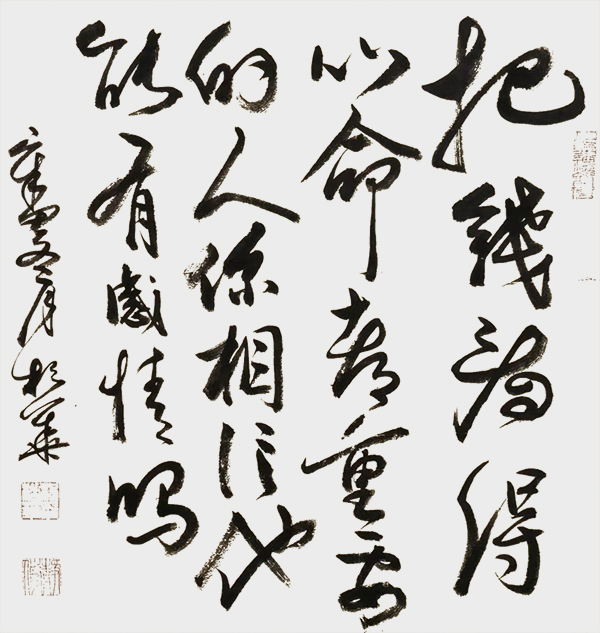 把錢看得
比命都重要
的人你相信他
能有感情嗎
月松華